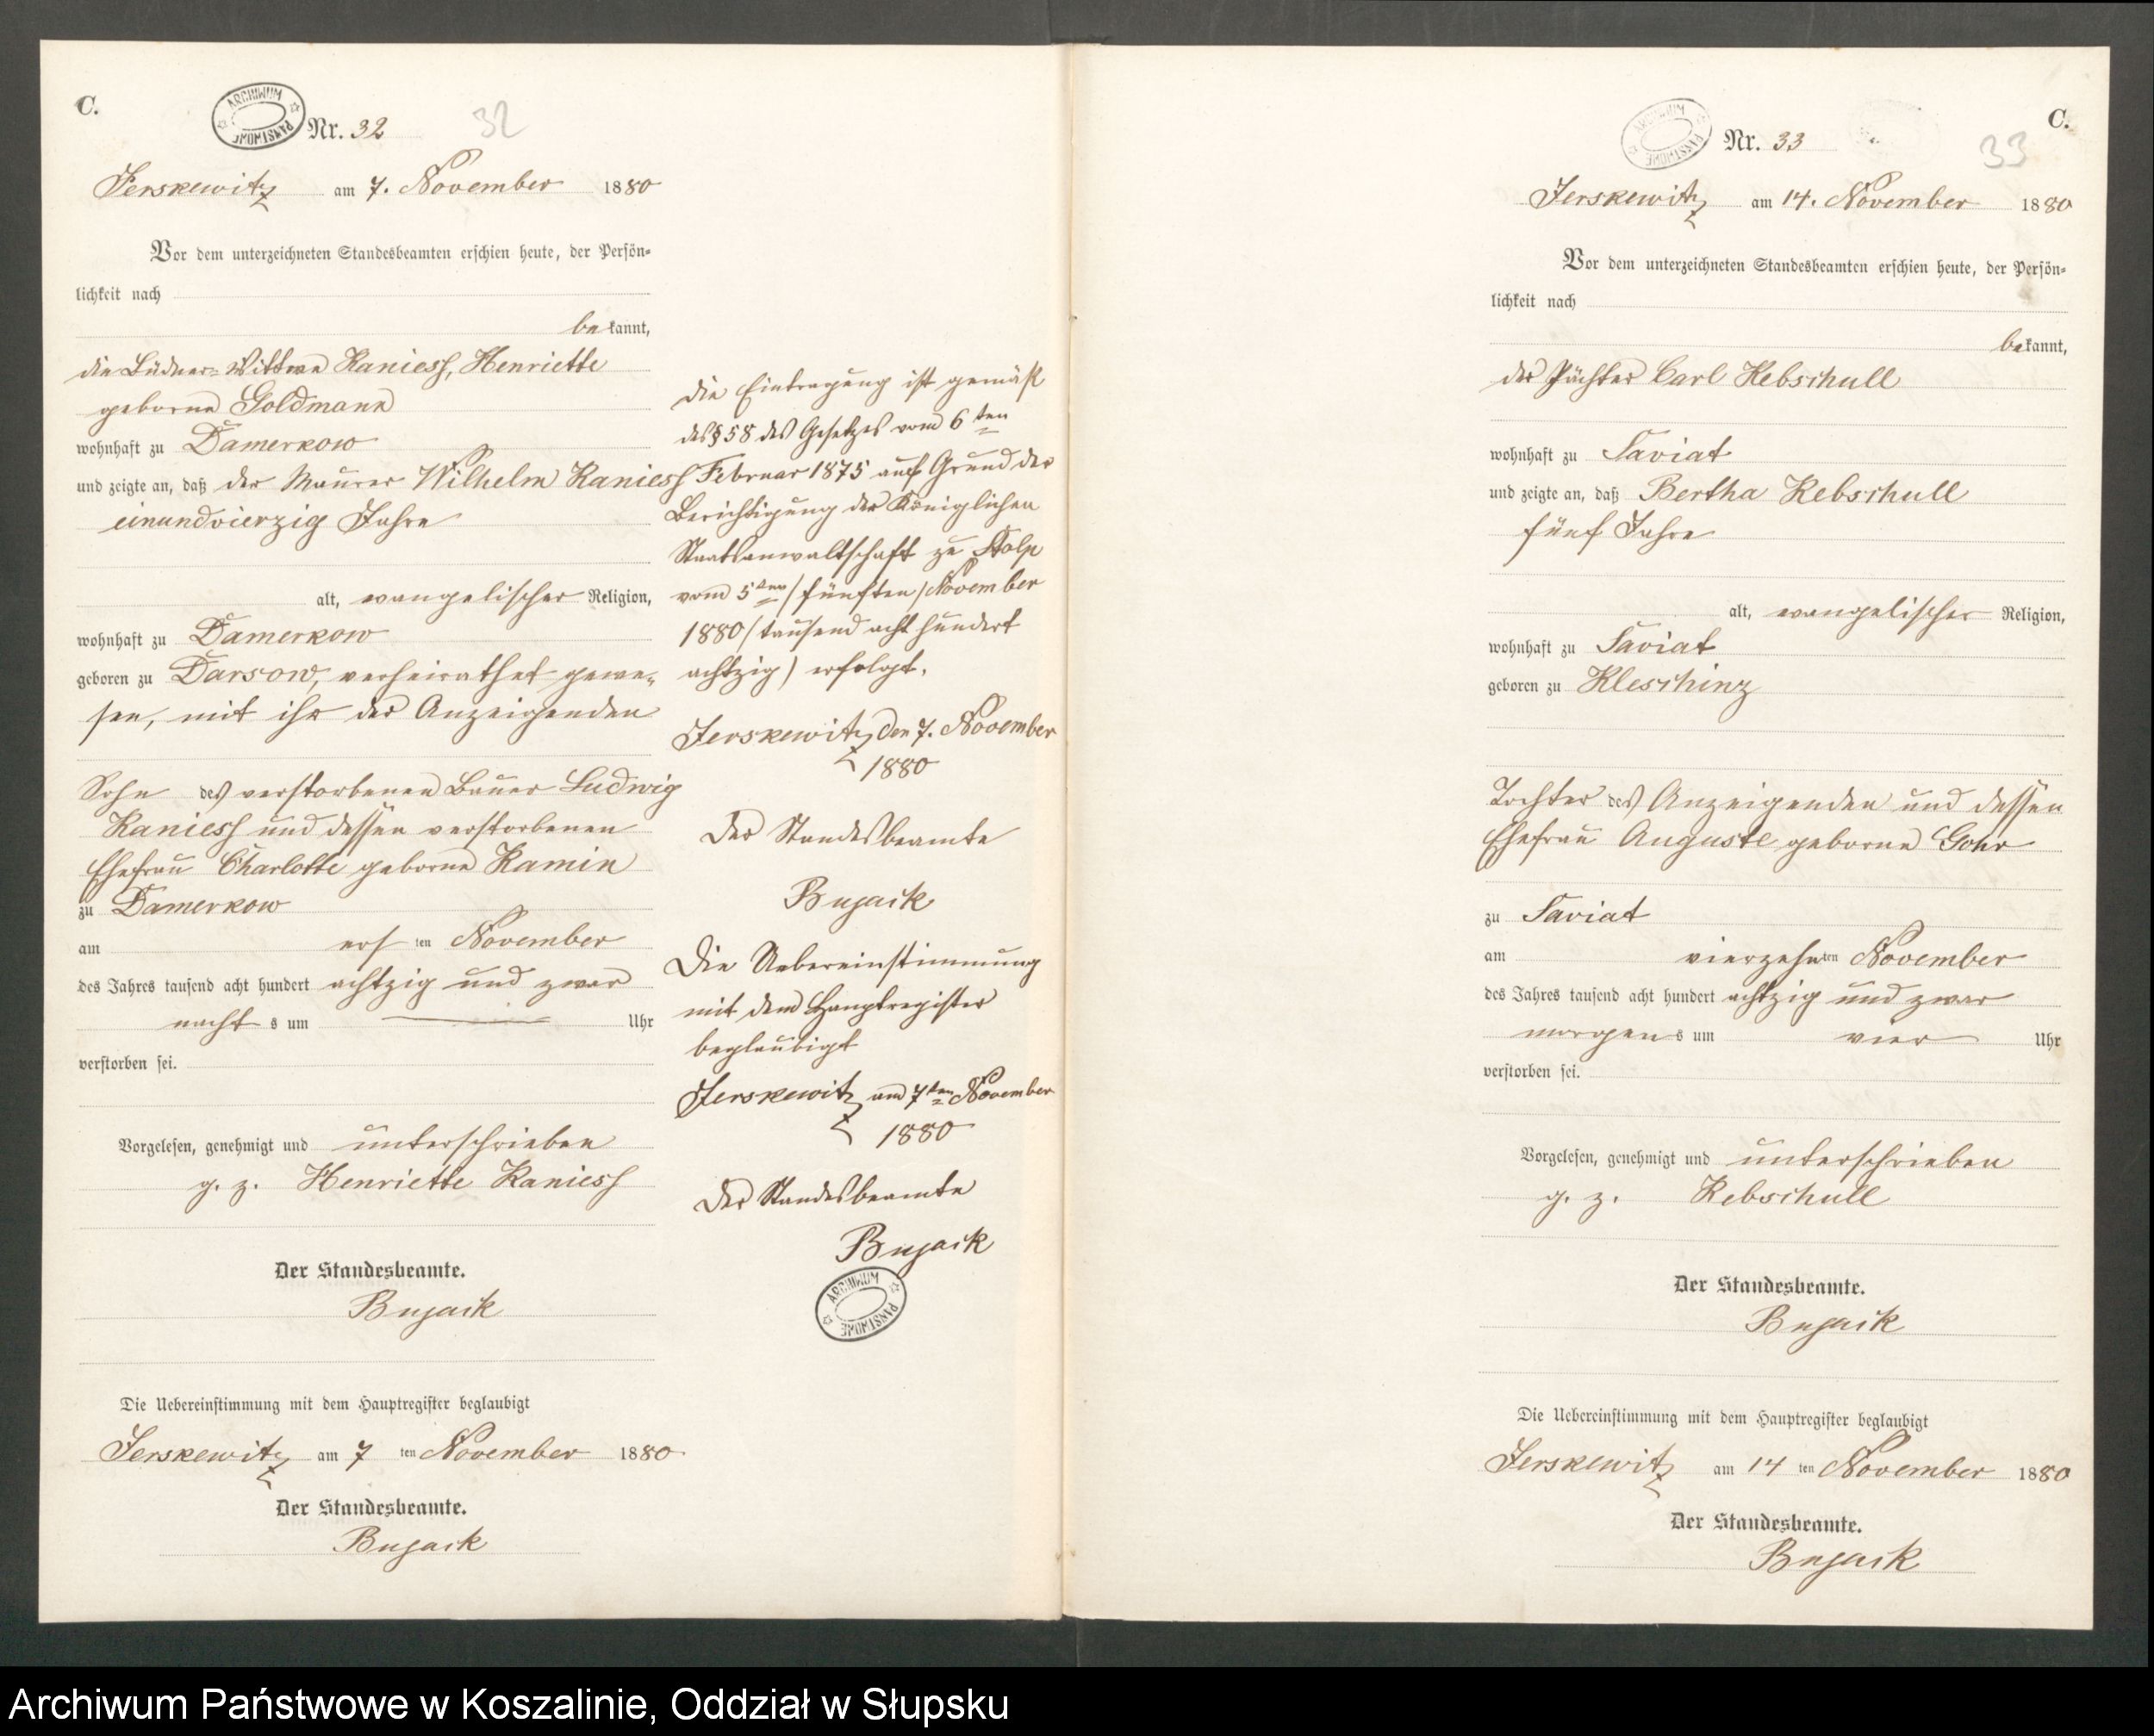 C.
ARCHIWUM PAŃSTWOWE
Nr. 32
32
Jerskewitz am 7. November 1880
Vor dem unterzeichneten Standesbeamten erschien heute, der Persön-
lichkeit nach
bekannt,
die Büdner-Wittwe Kaniess, Henriette
geborne Goldmann
wohnhaft zu Damerkow
und zeigte an, daß der Maurer Wilhelm Kaniess
einundvierzig Jahre
alt, evangelischer Religion,
wohnhaft zu Damerkow
geboren zu Darsow, verheirathet gewe-
sen, mit ihr der Anzeigenden
Sohn des verstorbenen Bauer Ludwig
Kaniess und dessen verstorbenen
Ehefrau Charlotte geborne Kamin
zu Damerkow
am ersten November
des Jahres tausend acht hundert achtzig und zwar
nachts um — Uhr
verstorben sei.
Vorgelesen, genehmigt und unterschrieben
g. z. Henriette Kaniess
Der Standesbeamte.
Bujack
Die Uebereinstimmung mit dem Hauptregister beglaubigt
Jerskewitz am 7 ten November 1880
Der Standesbeamte.
Bujack
Die Eintragung ist gemäß
des § 58 des Gesetzes vom 6ten
Februar 1875 auf Grund der
Berichtigung der Königlichen
Staatsanwaltschaft zu Stolp
vom 5ten /fünften/ November
1880 /tausend acht hundert
achtzig) erfolgt.
Jerskewitz den 7. November
1880
Der Standesbeamte
Bujack
Die Uebereinstimmung
mit dem Hauptregister
beglaubigt
Jerskewitz am 7ten November
1880
Der Standesbeamte
Bujack
ARCHIWUM PAŃSTWOWE
C.
ARCHIWUM PAŃSTWOWE
Nr. 33
33
Jerskewitz am 14. November 1880
Vor dem unterzeichneten Standesbeamten erschien heute, der Persön-
lichkeit nach
bekannt,
der Pächter Carl Rebschull
wohnhaft zu Saviat
und zeigte an, daß Bertha Rebschull
fünf Jahre
alt, evangelischer Religion,
wohnhaft zu Saviat
geboren zu Kleschinz
Tochter des Anzeigenden und dessen
Ehefrau Auguste geborne Gohr
zu Saviat
am vierzehnten November
des Jahres tausend acht hundert achtzig und zwar
morgens um vier Uhr
verstorben sei.
Vorgelesen, genehmigt und unterschrieben
g. z. Rebschull
Der Standesbeamte.
Bujack
Die Uebereinstimmung mit dem Hauptregister beglaubigt
Jerskewitz am 14 ten November 1880
Der Standesbeamte.
Bujack
Archiwum Państwowe w Koszalinie, Oddział w Słupsku